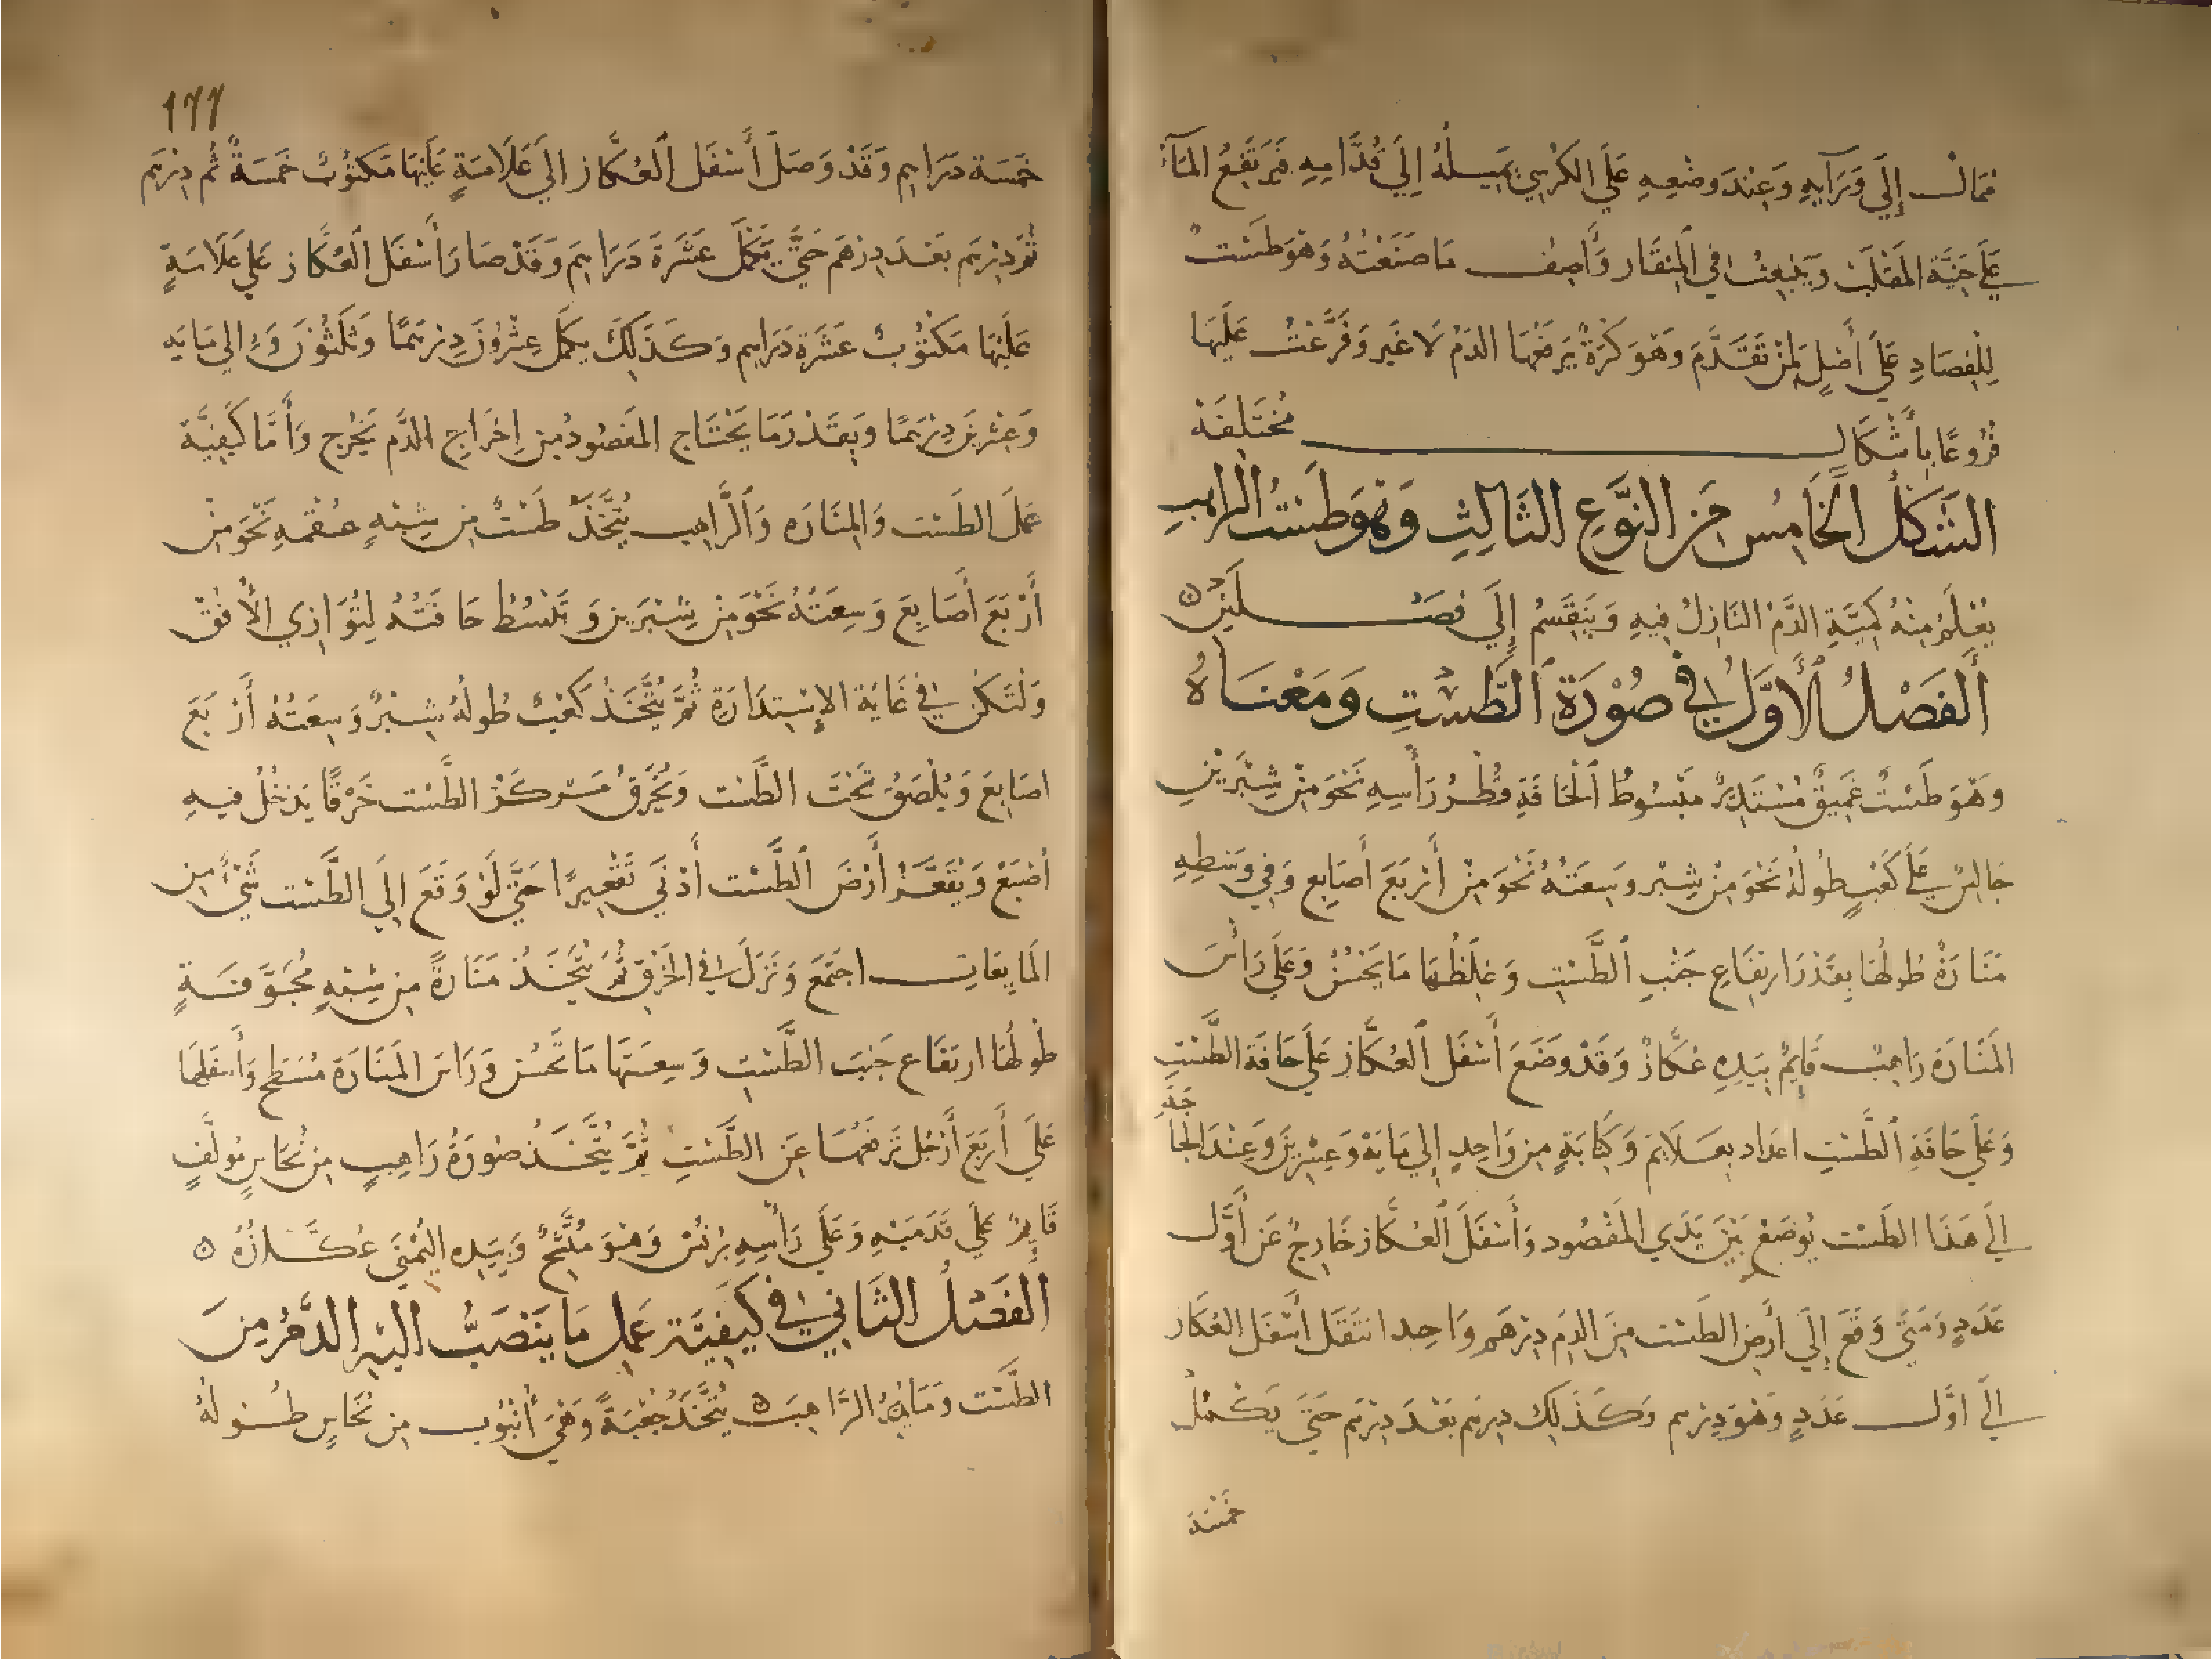 فمال إِلَى وَرَآيِهِ وَعِنْدَ وضْعِهِ عَلَى الكُرْسِي يَمِيلُهُ إِلَى قُدَّامِهِ فَيَرتَفِعُ المَآءُ
عَلَى جَنَبَةِ المَقْلَبَ وَيَنْبَعِثُ فِي المِنقَارِ وَأَصِفُ مَا صَنَعْتُهُ وَهْوَ طَسْتٌ
لِلْفِصَادِ عَلَى أَصْلٍ لِمَنْ تَقَدَّمَ وَهْوَ كُرَةٌ يَرفَعُهَا الدَمُ لَا غَيْر وَفَرَّعْتُ عَلَيهَا
فُرُوعًا بِأَشْكَالٍ مُختَلِفَة
الشَكْلُ الخَامِسُ مِنَ النَّوْعِ الثَالِثِ وَهْوَ طَسْتُ الرَاهِبِ
يُعْلَمُ مِنْهُ كَمِيَّةِ الدَّمْ النَازِلُ فِيهِ وَيَنقَسِمُ إِلَى فَصْلَيْنِ
أَلْفَصْلُ الأَوَّلُ فِي صُوْرَةِ الطَّسْتِ وَمَعْنَاهُ
وَهْوَ طَسْتٌ عَمِيقٌ مُسْتَدِيرٌ مَبْسُوطُ الحَافَةِ قُطْرُ رَأْسِهِ نَحْوَ مِنْ شِبْرَيْنِ
جَالِسٌ عَلَى كَعْبٍ طُولُهُ نَحْوَ مِنْ شِبْر وَسِعَتُهُ نَحْوَ مِنْ أَرْبَعَ أَصَابِع وَفِي وَسَطِهِ
مَنَارَةٌ طُولُهَا بِقَدْرِ ارتِفَاعِ جَنْبِ الطَّسْتِ وَغِلَظُهَا مَا يَحْسُنُ وَعَلَى رَأْسَ
المَنَارَةَ رَاهِبٌ قَائِمٌ بِيَدِهِ عُكَّازٌ وَقَدْ وَضَعَ أَسْفَلَ العُكَّازِ عَلَى حَافَةِ الطَّسْتِ
وَعَلَى حَافَةِ الطَّسْتِ اعْدَاد بِعَلَايِم وَكِتَابَةٍ مِن وَاحِدٍ إِلَى مَايَةْ وَعِشْرِينَ وَعِنْدَ الحَاجَةِ
إِلَى هَذَا الطَسْتِ يُوضَعْ بَيْنَ يَدَي المَفْصُودِ وَأَسْفَلَ العُكَّازِ خَارِجٌ عَنْ أَوَّلِ
عَدَدٍ وَمَتَى وَقَعَ إِلَى أَرضِ الطَسْتِ مِنَ الدَمِ دِرْهَم وَاحِد انتَقَلَ أَسْفَلَ العُكَّازِ
إِلَى أَوَّلِ عَدَدٍ وَهْوَ دِرْهَم وَكَذَلِكَ دِرْهَم بَعْدَ دِرْهَم حَتَّى يَكْمُلُ
خَمْسَة
١٦٦
خَمْسَة دَرَاهِم وَقَدْ وَصَلَ أَسْفَل العُكَّازِ إلَى عَلَامَةٍ عَلَيْهَا مَكْتُوبٌ خَمْسَةٌ ثُم دِرْهَم
ثُمَّ دِرْهَم بَعْدَ دِرْهَم حَتَّى تَكْمُلَ عَشَرَةَ دَرَاهِم وَقَدْ صَارَ أَسْفَلَ العُكَّازِ عَلَى عَلَامَةٍ
عَلَيْهَا مَكْتُوبٌ عَشَرَةِ دَرَاهِم وَكَذَلِكَ يَكْمُل عِشْرُونَ دِرْهَمًا وَثَلَثُونَ وَإِلى مَايَه
وَعِشْرِينَ دِرْهَمًا وَبِقَدْرِ مَا يَحْتَاج المَفصُودُ مِن اِخرَاجِ الدَّمِ يَخْرُج وَأَمَّا كَيفِيَّة
عَمَلَ الطَسْت وَالمنَارَه وَالرَّاهِب يُتَّخَذُ طَسْتٌ مِن شِبْهٍ عُمْقُهِ نَحْوَ مِنْ
أَرْبَعَ أَصَابِعَ وَسِعَتُهُ نَحْوَ مِنْ شِبْرَين وَتُبْسَطُ حَافَتُهُ لِتُوَازِي الأُفُقْ
وَلْتَكُنْ فِي غَايَة الاِسْتِدَارَةِ ثُمَّ يُتَّخَذُ كَعْبٌ طُولُهُ شِبْرٌ وَسِعَتُهُ أَرْبَعَ
اصَابِعَ وَيُلْصَقُ تَحْتَ الطَّسْت وَيُخْرَقُ مَرْكَزُ الطَّسْت خَرْقًا يَدْخُلُ فِيهِ
أُصْبَعْ وَيُقَعَّرْ أَرْضَ الطَّسْت أَدْنَى تَقْعِيرًا حَتَّى لَوْ وَقَعَ إِلَى الطَّسْت شَيْءٌ مِن
المَايِعَاتِ اجتَمَعَ وَنَزَلَ فِي الخَرْقِ ثُمَّ يُتَّخَذُ مَنَارَةً مِن شِبْهٍ مُجَوَّفَةٍ
طُولُهَا ارتِفَاع جَنْبَ الطَّسْتِ وَسِعَتُهَا مَا يَحْسُن وَرَاسَ المَنَارَةِ مُسَطَّح وَأَسفَلُهَا
عَلَى أَربَعَ أَرْجُل تَرفَعُهَا عَنِ الطَّسْتِ ثُمَّ يُتَّخَذُ صُورَةُ رَاهِبٍ مِنْ نُحَاسٍ مُوَلَّفٍ
قَايِمٌ عَلَى قَدَمَيْهِ وَعَلَى رَأْسِهِ بُرْنُسْ وَهْوَ مُلْتَحٍ وَبِيَدِهِ اليُمْنَى عُكَّازُهُ
الفَصْلُ الثَّانِي فِي كَيفِيَّة عَمَلِ مَا يَنْصَبُّ الَيْهِ الدَّمُ مِنَ
الطَّسْت وَمَا يُدِيرُ الرَّاهِبَ يُتَّخَذُ جَعْبَةً وَهْيَ أُنْبُوب مِن نُحَاسٍ طُولُهُ